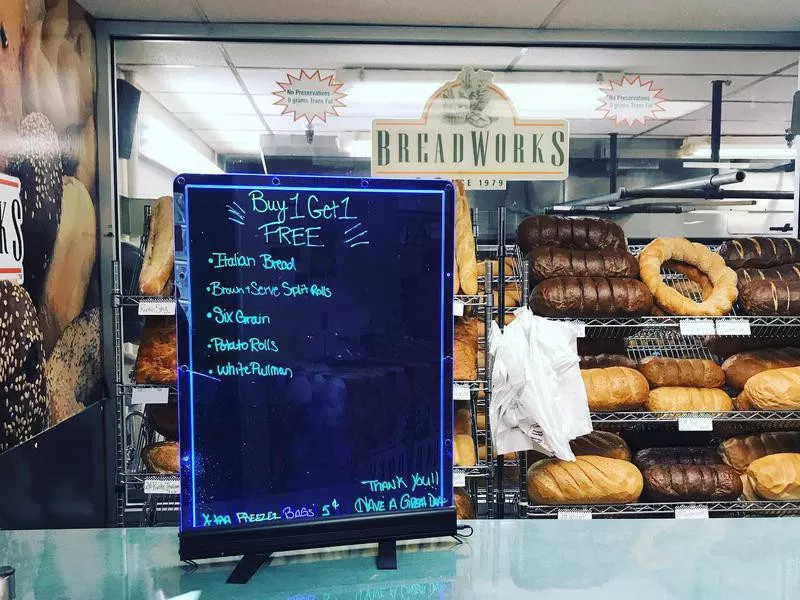 No Preservatives
0 grams Trans Fat
No Preservatives
0 grams Trans Fat
BREADWORKS
SINCE 1979
KS
Buy 1 Get 1
FREE
• Italian Bread
• Brown + Serve Split Rolls
• Six Grain
• Potato Rolls
• White Pullman
THANK YOU!!
HAVE A GREAT DAY
X-tra FREEZER BAGS 5¢